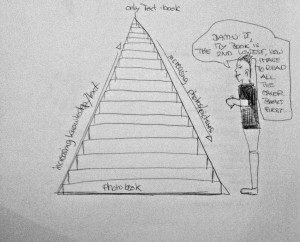 only Text-book
increasing knowledge/text
increasing photos/pictures
Photobook
DAMN IT,
MY BOOK IS
THE 2ND LOWEST, NOW
I HAVE
TO READ
ALL
THE
OTHER
BOOKS
FIRST.